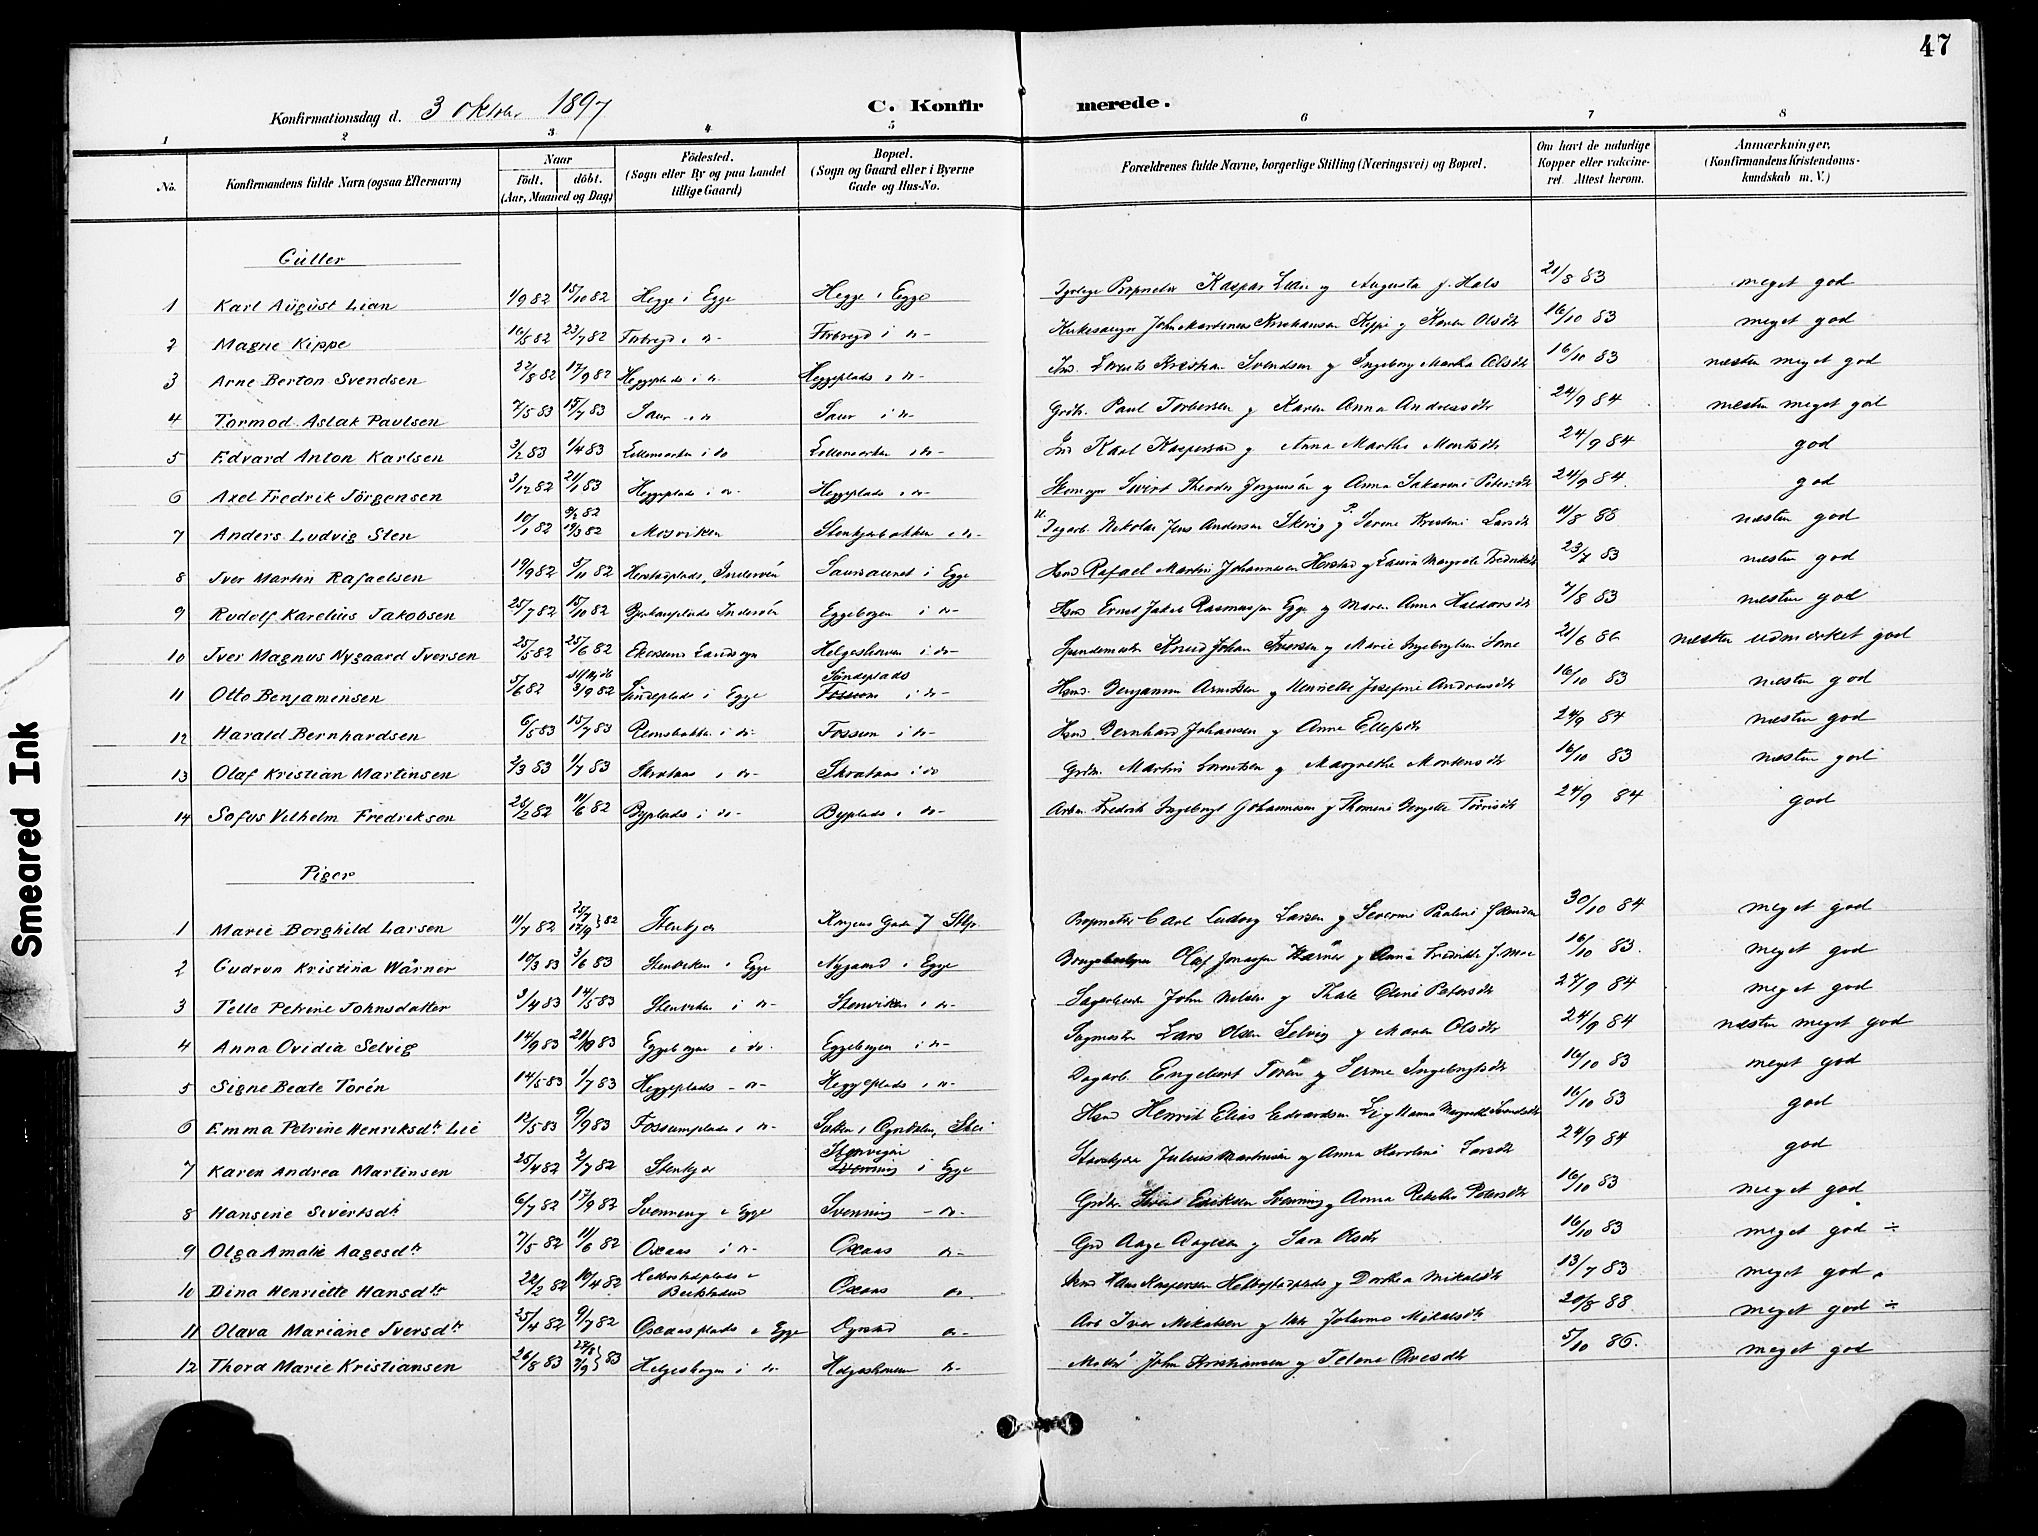 47
Konfirmationsdag d. 3 Oktober 1897
C. Konfirmerede.
1 2 3 4 5 6 7 8
No. Konfirmandens fulde Navn (ogsaa Efternavn) Naar Födt. döbt. (Aar, Maaned og Dag) Födested. (Sogn eller By og paa Landet tillige Gaard) Bopæl. (Sogn og Gaard eller i Byerne Gade og Hus-No. Forældrenes fulde Navne, borgerlige Stilling (Næringsvei) og Bopæl. Om havt de naturlige Kopper eller vakcineret. Attest herom. Anmærkninger, (Konfirmandens Kristendomskundskab m. V.)
Gutter
1 Karl August Lian 1/9 82 15/10 82 Hegge i Egge Hegge i Egge Kaspar Lian og Augusta f. Hals 21/8 83 meget god
2 Magne Kippe 16/5 82 23/7 82 Forbregd i do- Forbregd i do- Kirkesanger John Martinus Kristiansen Kippe og Karen Olsdtr 16/10 83 meget god
3 Arne Berton Svendsen 22/8 82 17/9 82 Heggeplads i do Heggeplads i do- Ind. Lorents Kristian Svendsen og Ingeborg Martha Olsdtr 16/10 83 næsten meget god
4 Tormod Aslak Paulsen 7/5 83 15/7 83 Saur i do Saur i do- Grdb. Paul Torbersen og Karen Anna Andreasdtr 24/9 84 næsten meget god
5 Edvard Anton Karlsen 3/2 83 1/4 83 i do i do- Karl Kaspersen og Anna Martha Mortsdtr 24/9 84 god
6 Axel Fredrik Jörgensen 3/12 82 21/1 83 Heggeplads i do- Heggeplads i do- Sivert Theodor Jorgensen og Anna Sakarine Petersdtr 24/9 84. god
7 Anders Ludvig Sten 10/1 82 82 19/3 82 Mosviken Stenkjerbakken i do- Nikolai Jens Andersen og Serine Kristine Larsdtr 11/8 88 næsten god
8 Iver Martin Rafaelsen 19/9 82 5/11 82 Herstadplads, Inderöen Saursaunet i Egge Hsmd Rafael Martin Johannesen Herstad og Margrete Fredriksdtr 23/7 83 næsten god
9 Rudolf Karelius Jakobsen 25/7 82 15/10 82 Inderöen Eggebogen i do- Hsmd Ernst Jakob Rasmussen Egge og Maren Anna Haldorsdtr 7/8 83 næsten god
10 Iver Magnus Nygaard Iversen 25/5 82 25/6 82 Landsogn Helgeshoven i do- Knud Johan Iversen og Marie 21/6 86 næsten udmerket god
11 Otto Benjamensen 5/6 82 3/9 82 Sundeplads i Egge Sundeplads Fossem i do- Hsmd. Benjamin Arntsen og Henriette Josefine Andreasdtr 16/10 83 næsten god
12 Harald Bernhardsen 6/5 83 15/7 83 Remsbakken i do- Fossem i do- Hsmd. Bernhard Johansen og Anne Ellefsdtr 24/9 84 næsten god
13 Olaf Kristian Martinsen 2/3 83 1/7 83 Skrataas i do- Skrataas i do Grdb. Martin Lorentsen og Margrethe Mortensdtr 16/10 83 næsten god
14 Sofus Vilhelm Fredriksen 25/2 82 11/6 82 Byplads i do- Byplads i do- Arbm Fredrik Ingebrigt Johannesen og Thomine 24/9 84 god
Piger
1 Marie Borghild Larsen 11/7 82 25/7 17/9 } 82 Stenkjer Kongens Gade 7 Stkjr. Carl Ludvig Larsen og Severine Pauline 30/10 84 meget god
2 Gudrun Kristina Wärner 10/3 83 3/6 83 Stenviken i Egge Nygaard i Egge Olaf Jonassen Wärner og Anna Fredrikke f. Moe 16/10 83. meget god
3 Telle Petrine Johnsdatter 3/4 83 14/5 83 Stenviken i do- Stenviken i do- John Nilsen og Thale Oline Petersdtr 27/9 84 meget god
4 Anna Ovidia Selvig 14/9 83 21/10 83 Eggebogen i do. Eggebogen i do- Sagmester Lars Olsen Selvig og Maren Olsdtr 24/9 84 næsten meget god
5 Signe Beate Torén 14/5 83 1/7 83 Heggeplads - do- Heggeplads i do- Dagarb. Engebert Toren og Serine Ingebrigtsdtr 16/10 83 meget god
6 Emma Petrine Henriksdtr Lie 17/5 83 9/9 83 Fossumplads i do- Hsmd Henrik Elias Edvardsen Lie og Hanna Margrethe 16/10 83 god
7 Karen Andrea Martinsen 25/4 82 2/7 82 Stenkjer Stenvigen Svenning i Egge Julius Martinsen og Anna Karoline Larsdtr 24/9 84 god
8 Hansine Sivertsdtr 6/7 82 17/9 82 Svenning i Egge Svenning - do- Grdbr. Sivert Eriksen Svenning og Anna Rebekka Petersdtr 16/10 83 meget god
9 Olga Amalie Aagesdtr 7/5 82 11/6 82 Oxaas i do- Oxaas do- Grd Aage Aagesen og Sara Olsdtr 16/10 83 meget god ÷
10 Dina Henriette Hansdtr 22/2 82 10/4 82 Helbostadplads i Beitstaden Oxaas do. Hans Kaspersen Helbostadplads og Dorthea Mikalsdtr 13/7 83 meget god
11 Olava Mariane Iversdtr 25/4 82 9/7 82 Oxaasplads i Egge Dyrstad do- Arb Iver Mikalsen og Johanna Mikalsdtr 20/8 88 meget god ÷
12 Thora Marie Kristiansen 26/8 83 27/8 7/9 } 83 Helgesbogen i do- Helgeshoven do- John Kristiansen og Teline Ovesdtr 5/10 86. meget god
Smeared Ink